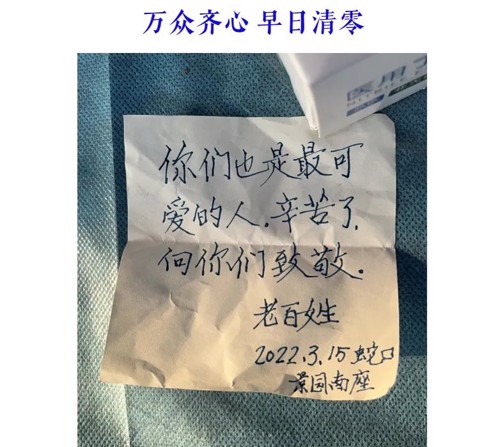 万众齐心 早日清零
医用
你们也是最可
爱的人.辛苦了,
向你们致敬.
老百姓
2022.3.15蛇口
景园南座